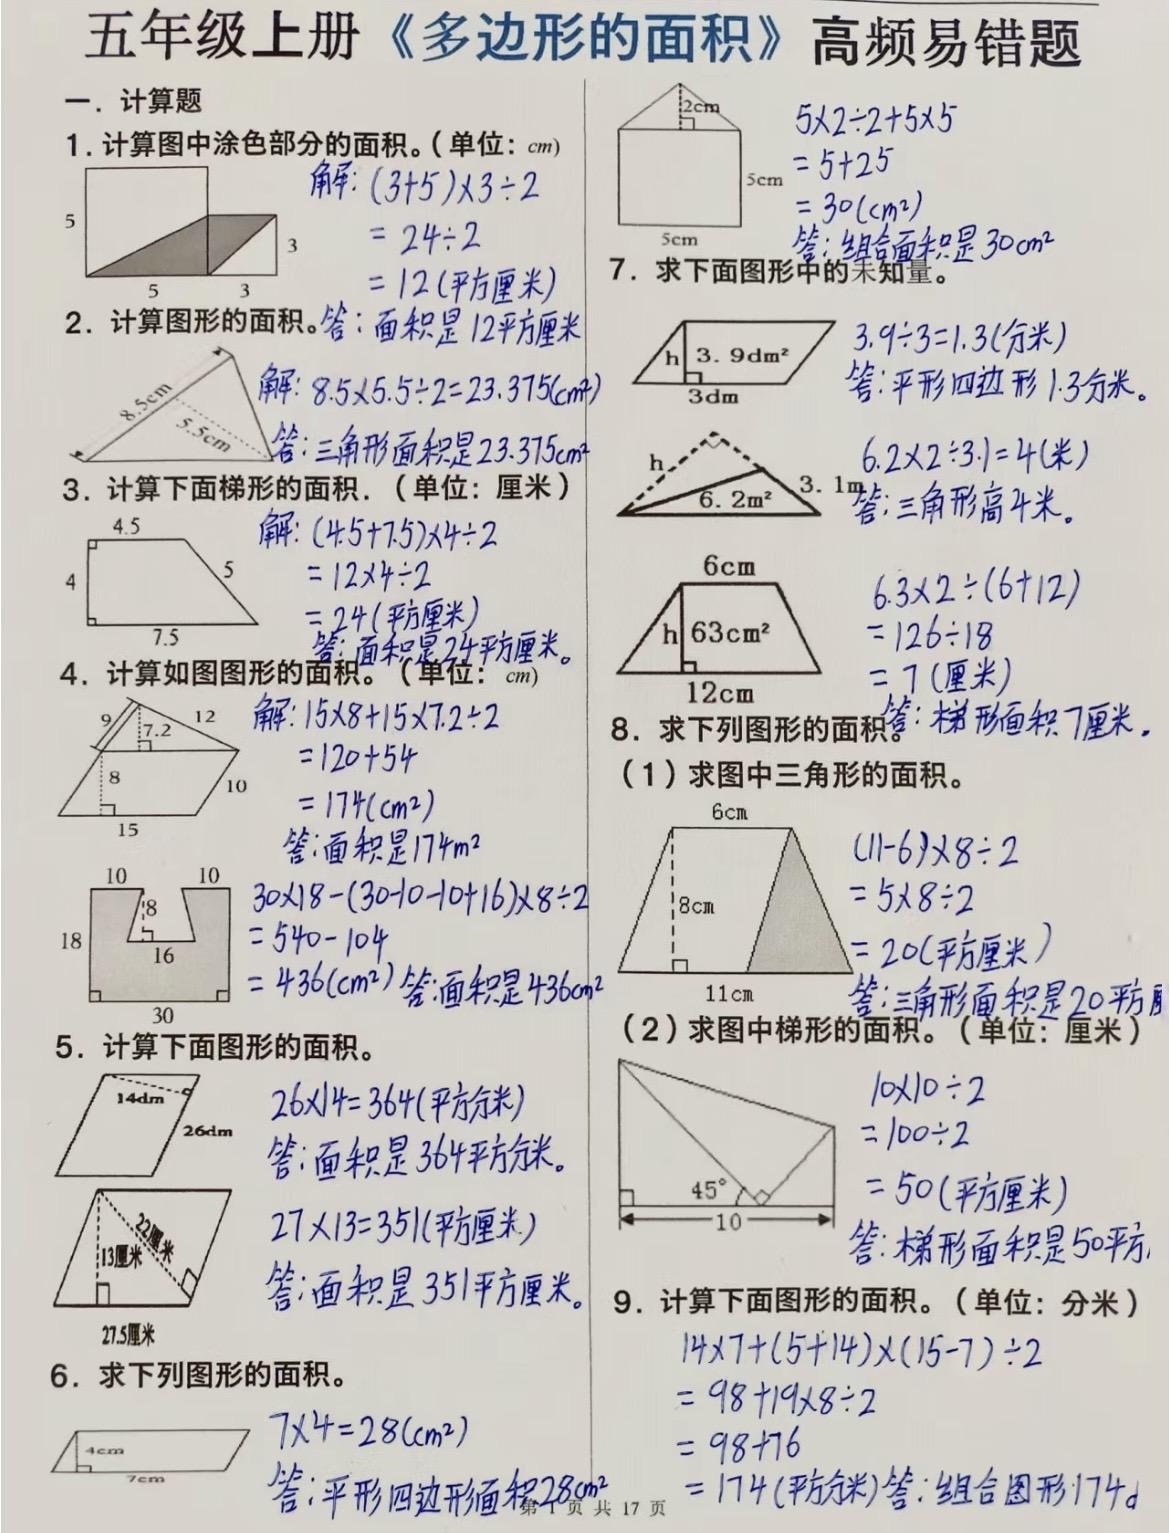 五年级上册《多边形的面积》高频易错题
一．计算题
1．计算图中涂色部分的面积。（单位：cm）
5
3
5
3
解：(3+5)×3÷2
= 24÷2
= 12(平方厘米)
答：面积是12平方厘米
2．计算图形的面积。
8.5cm
5.5cm
解：8.5×5.5÷2=23.375(cm²)
答：三角形面积是23.375cm²
3．计算下面梯形的面积．（单位：厘米）
4.5
4
5
7.5
解：(4.5+7.5)×4÷2
= 12×4÷2
= 24(平方厘米)
答：面积是24平方厘米。
4．计算如图图形的面积。（单位：cm）
9
7.2
12
8
10
15
解：15×8+15×7.2÷2
=120+54
=174(cm²)
答：面积是174m²
10
10
8
18
16
30
30×18-(30-10-10+16)×8÷2
= 540-104
= 436(cm²) 答：面积是436cm²
5．计算下面图形的面积。
14dm
26dm
26×14=364(平方分米)
答：面积是364平方分米。
22厘米
13厘米
27.5厘米
27×13=351(平方厘米)
答：面积是351平方厘米。
6．求下列图形的面积。
4cm
7cm
7×4=28(cm²)
答：平形四边形面积28cm²
2cm
5cm
5cm
5×2÷2+5×5
= 5+25
= 30(cm²)
答：组合面积是30cm²
7．求下面图形中的未知量。
h
3.9dm²
3dm
3.9÷3=1.3(分米)
答：平形四边形1.3分米。
h
3.1m
6.2m²
6.2×2÷3.1=4(米)
答：三角形高4米。
6cm
h
63cm²
12cm
6.3×2÷(6+12)
= 126÷18
= 7(厘米)
答：梯形面积7厘米。
8．求下列图形的面积。
（1）求图中三角形的面积。
6cm
8cm
11cm
(11-6)×8÷2
= 5×8÷2
= 20(平方厘米)
答：三角形面积是20平方
（2）求图中梯形的面积。（单位：厘米）
45°
10
10×10÷2
= 100÷2
= 50(平方厘米)
答：梯形面积是50平方
9．计算下面图形的面积。（单位：分米）
14×7+(5+14)×(15-7)÷2
= 98+19×8÷2
= 98+76
= 174(平方分米)答：组合图形174d
第 1 页 共 17 页